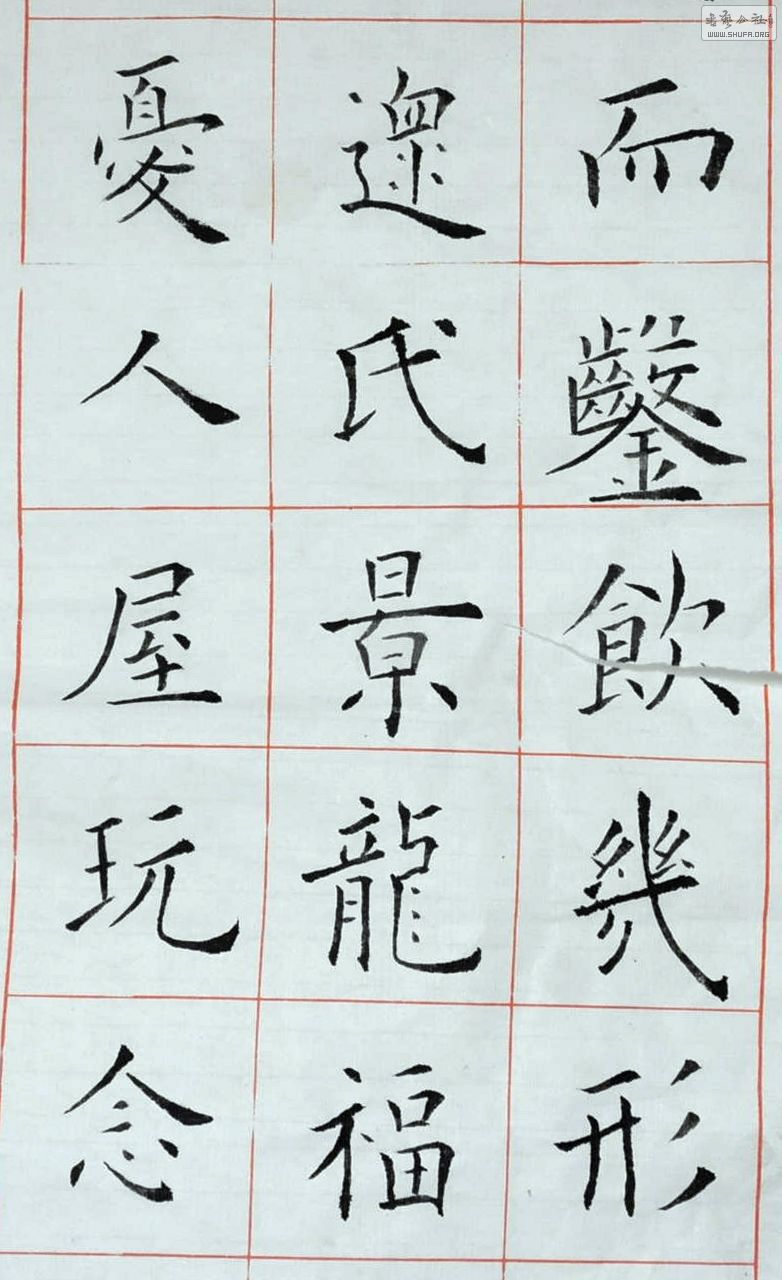 而鑿飲幾形
邈氏景龍福
憂人屋玩念
WWW.SHUFA.ORG